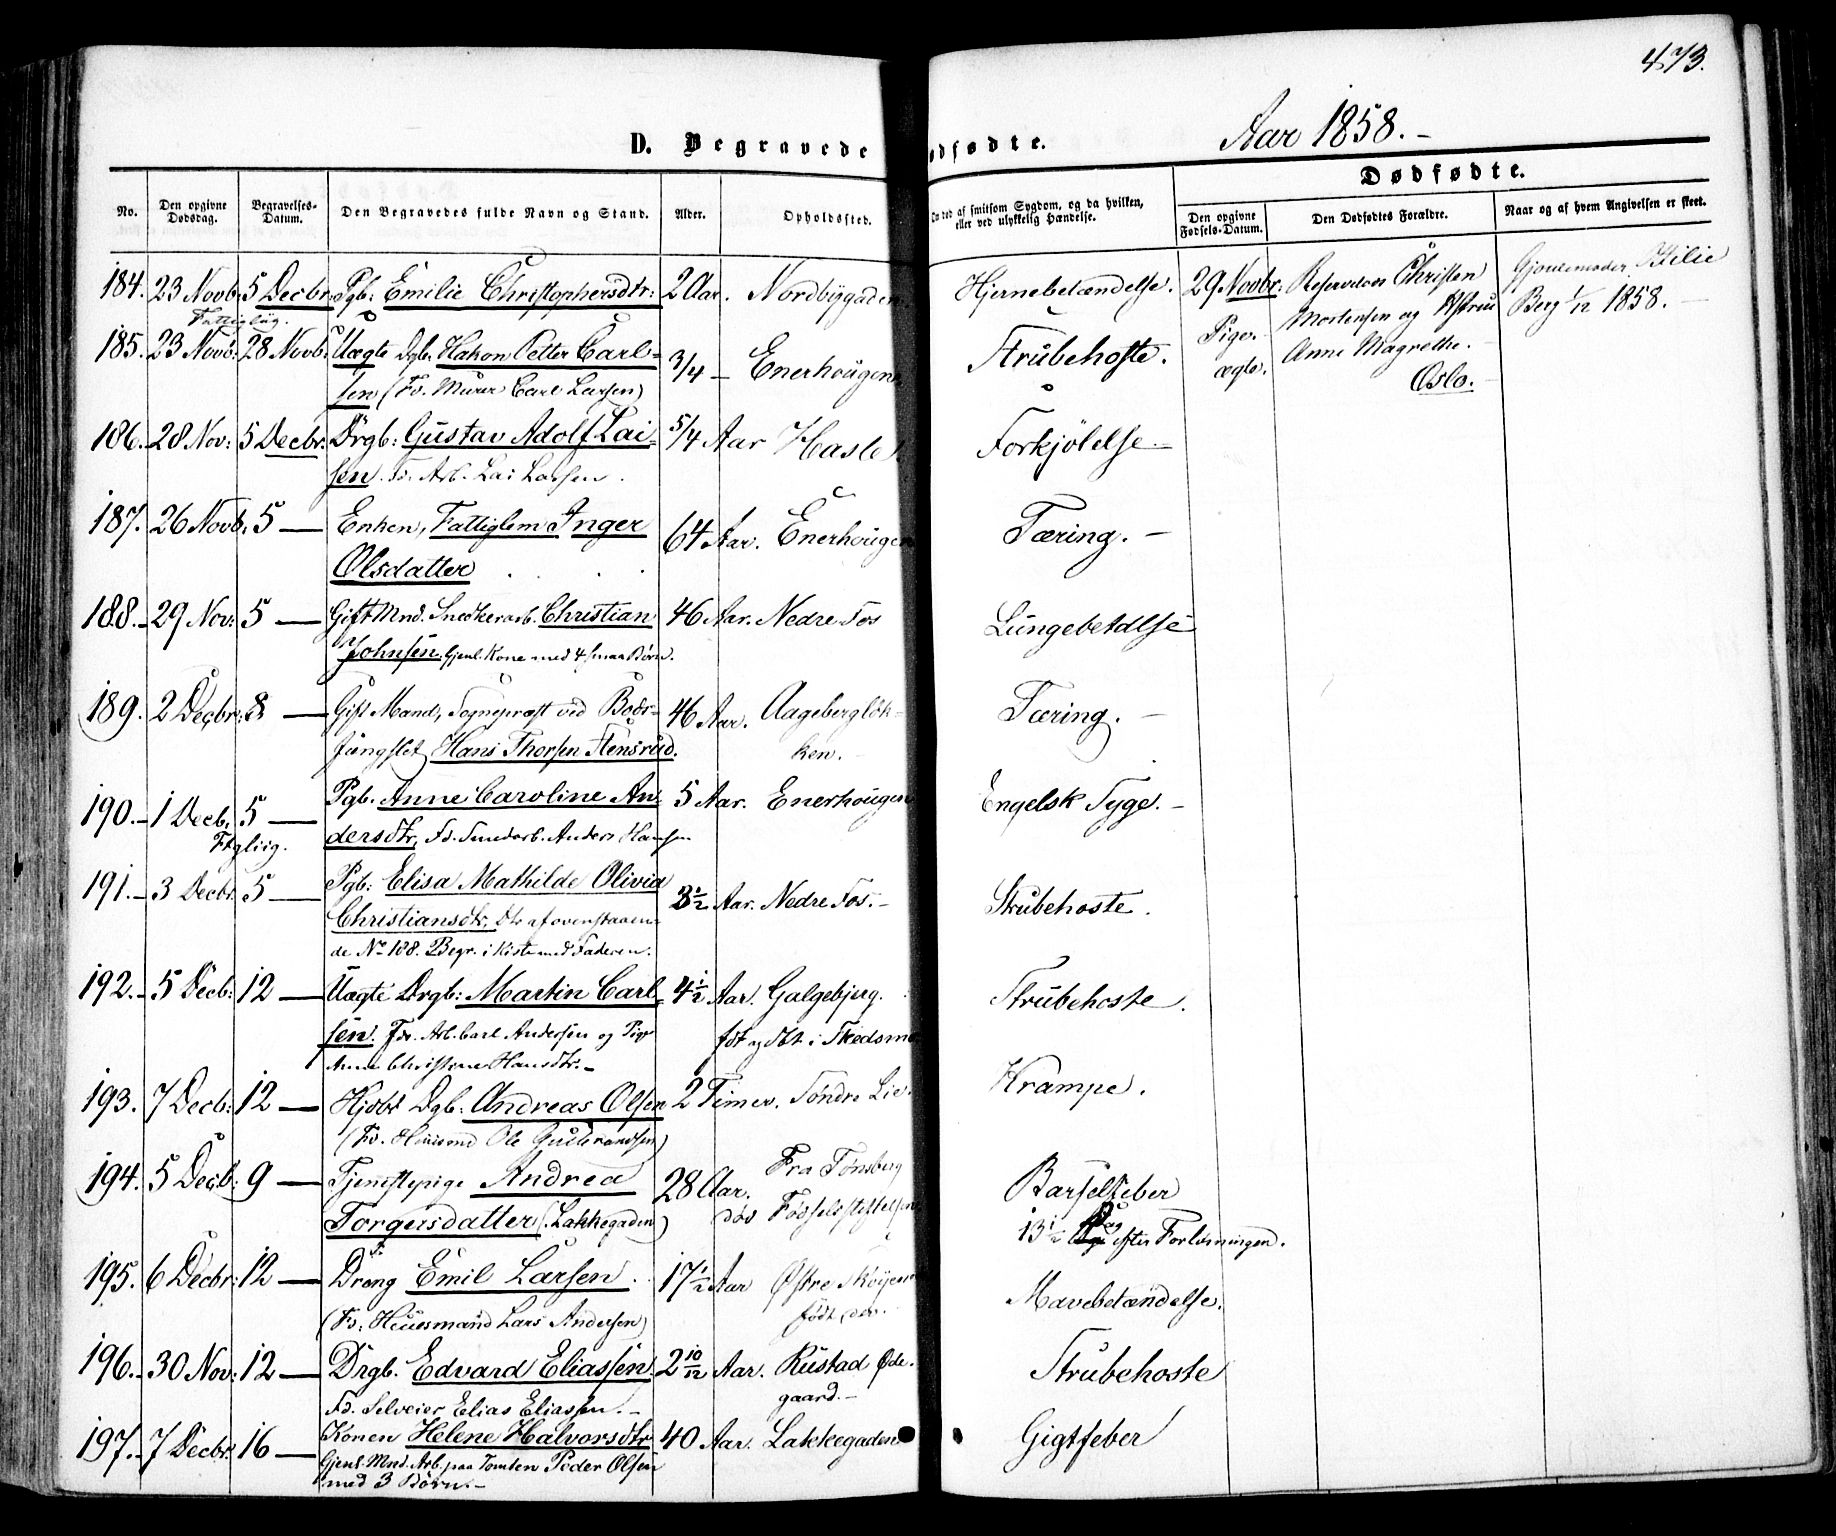 473.
Aar 1858.-
D. Begravede
ødfødte.
Dødfødte.
No.
Den opgivne Dødsdag.
Begravelses-Datum.
Den Begravedes fulde Navn og Stand.
Alder.
Opholdssted.
ed af smitsom Sygdom, og da hvilken, eller ved ulykkelig Hændelse.
Den opgivne Fødsels-Datum.
Den Dødfødtes Forældre.
Naar og af hvem Angivelsen er skeet.
184. 23 Novb. 5 Decbr. Pgb: Emilie Christophersdtr: 2 Aar. Nordbygaden Hjernebetændelse. 29 Novbr: Christen Gjordemoder
Mortensen og Berg 1/12 1858.
Pige. Anne Magrethe.
ægte. Oslo.
185. 23 Novb: 28 Novb. Uægte Dgb. Hakon Petter Carl- 3/4 — Enerhougen Strubehoste.
sen (Fd. Murer Carl Larsen)
186. 28 Nov: 5 Decbr. Drgb: Gustav Adolf Lai- 5/4 Aar Hasle Forkjølelse.-
sen. Fd. Arb. Lai Larsen.
187. 26 Novb. 5 — Enken, Fattiglem Inger 64 Aar. Enerhougen Tæring.-
Olsdatter
188.- 29 Nov: 5 — Gift Mnd. Snedkerarb. Christian 46 Aar. Nedre Fos Lungebetdlse
Johnsen. Gjenl. Kone med 4 smaa Børn.
189. 2 Decbr: 8 — Gift Mand, Sognepræst ved Bods- 46 Aar. Aagebergløk- Tæring.-
fængslet Hans Thorsen Stensrud. ken.-
190.- 1 Decb. 5 — Pgb. Anne Caroline An- 5 Aar. Enerhougen Engelsk Syge.-
dersdtr, Fd. Anders Hansen
191.- 3 Decbr. 5 — Pgb: Elisa Mathilde Olivia 3 1/2 Aar. Nedre Fos.- Strubehoste.
Christiansdtr, Dtr af ovenstaaen-
de No 188. Begr. i Kiste med Faderen.
192.- 5 Decb: 12 — Uægte Drgb: Martin Carl- 4 1/2 Aar. Galgebjerg. Strubehoste.
sen. Fdr. Arb. Carl Andersen og Pige fdt og dbt i Skedsmo
Anne Christine Hansdtr.-
193. 7 Decb: 12 — Hjdbt Dgb: Andreas Olsen 2 Timer. Søndre Lie. Krampe.
(Fd. Huusmd Ole Gulbrandsen)
194. 5 Decb: 9 — Tjenestepige Andrea 28 Aar. Fra Tønsberg Barselfeber
Torgersdatter (Lakkegaden) død Fødselsstiftelsen 13 1/2 Dag efter Forløsningen.
195. 6 Decbr: 12 — Dreng Emil Larsen. 17 1/2 Aar Østre Skøyen Mavebetændelse.
(Fd: Huusmand Lars Andersen) født der.
196.- 30 Nov: 12 — Drgb. Edvard Eliassen 2 10/12 Aar. Rustad Øde- Strubehoste
Fd. Selveier Elias Eliassen.- gaard.-
197. 7 Decbr. 16 — Konen Helene Halvorsdtr 40 Aar. Lakkegaden Gigtfeber
Gjenl. Mnd. Arb. paa Tomten Peder Olsen
med 3 Børn.-